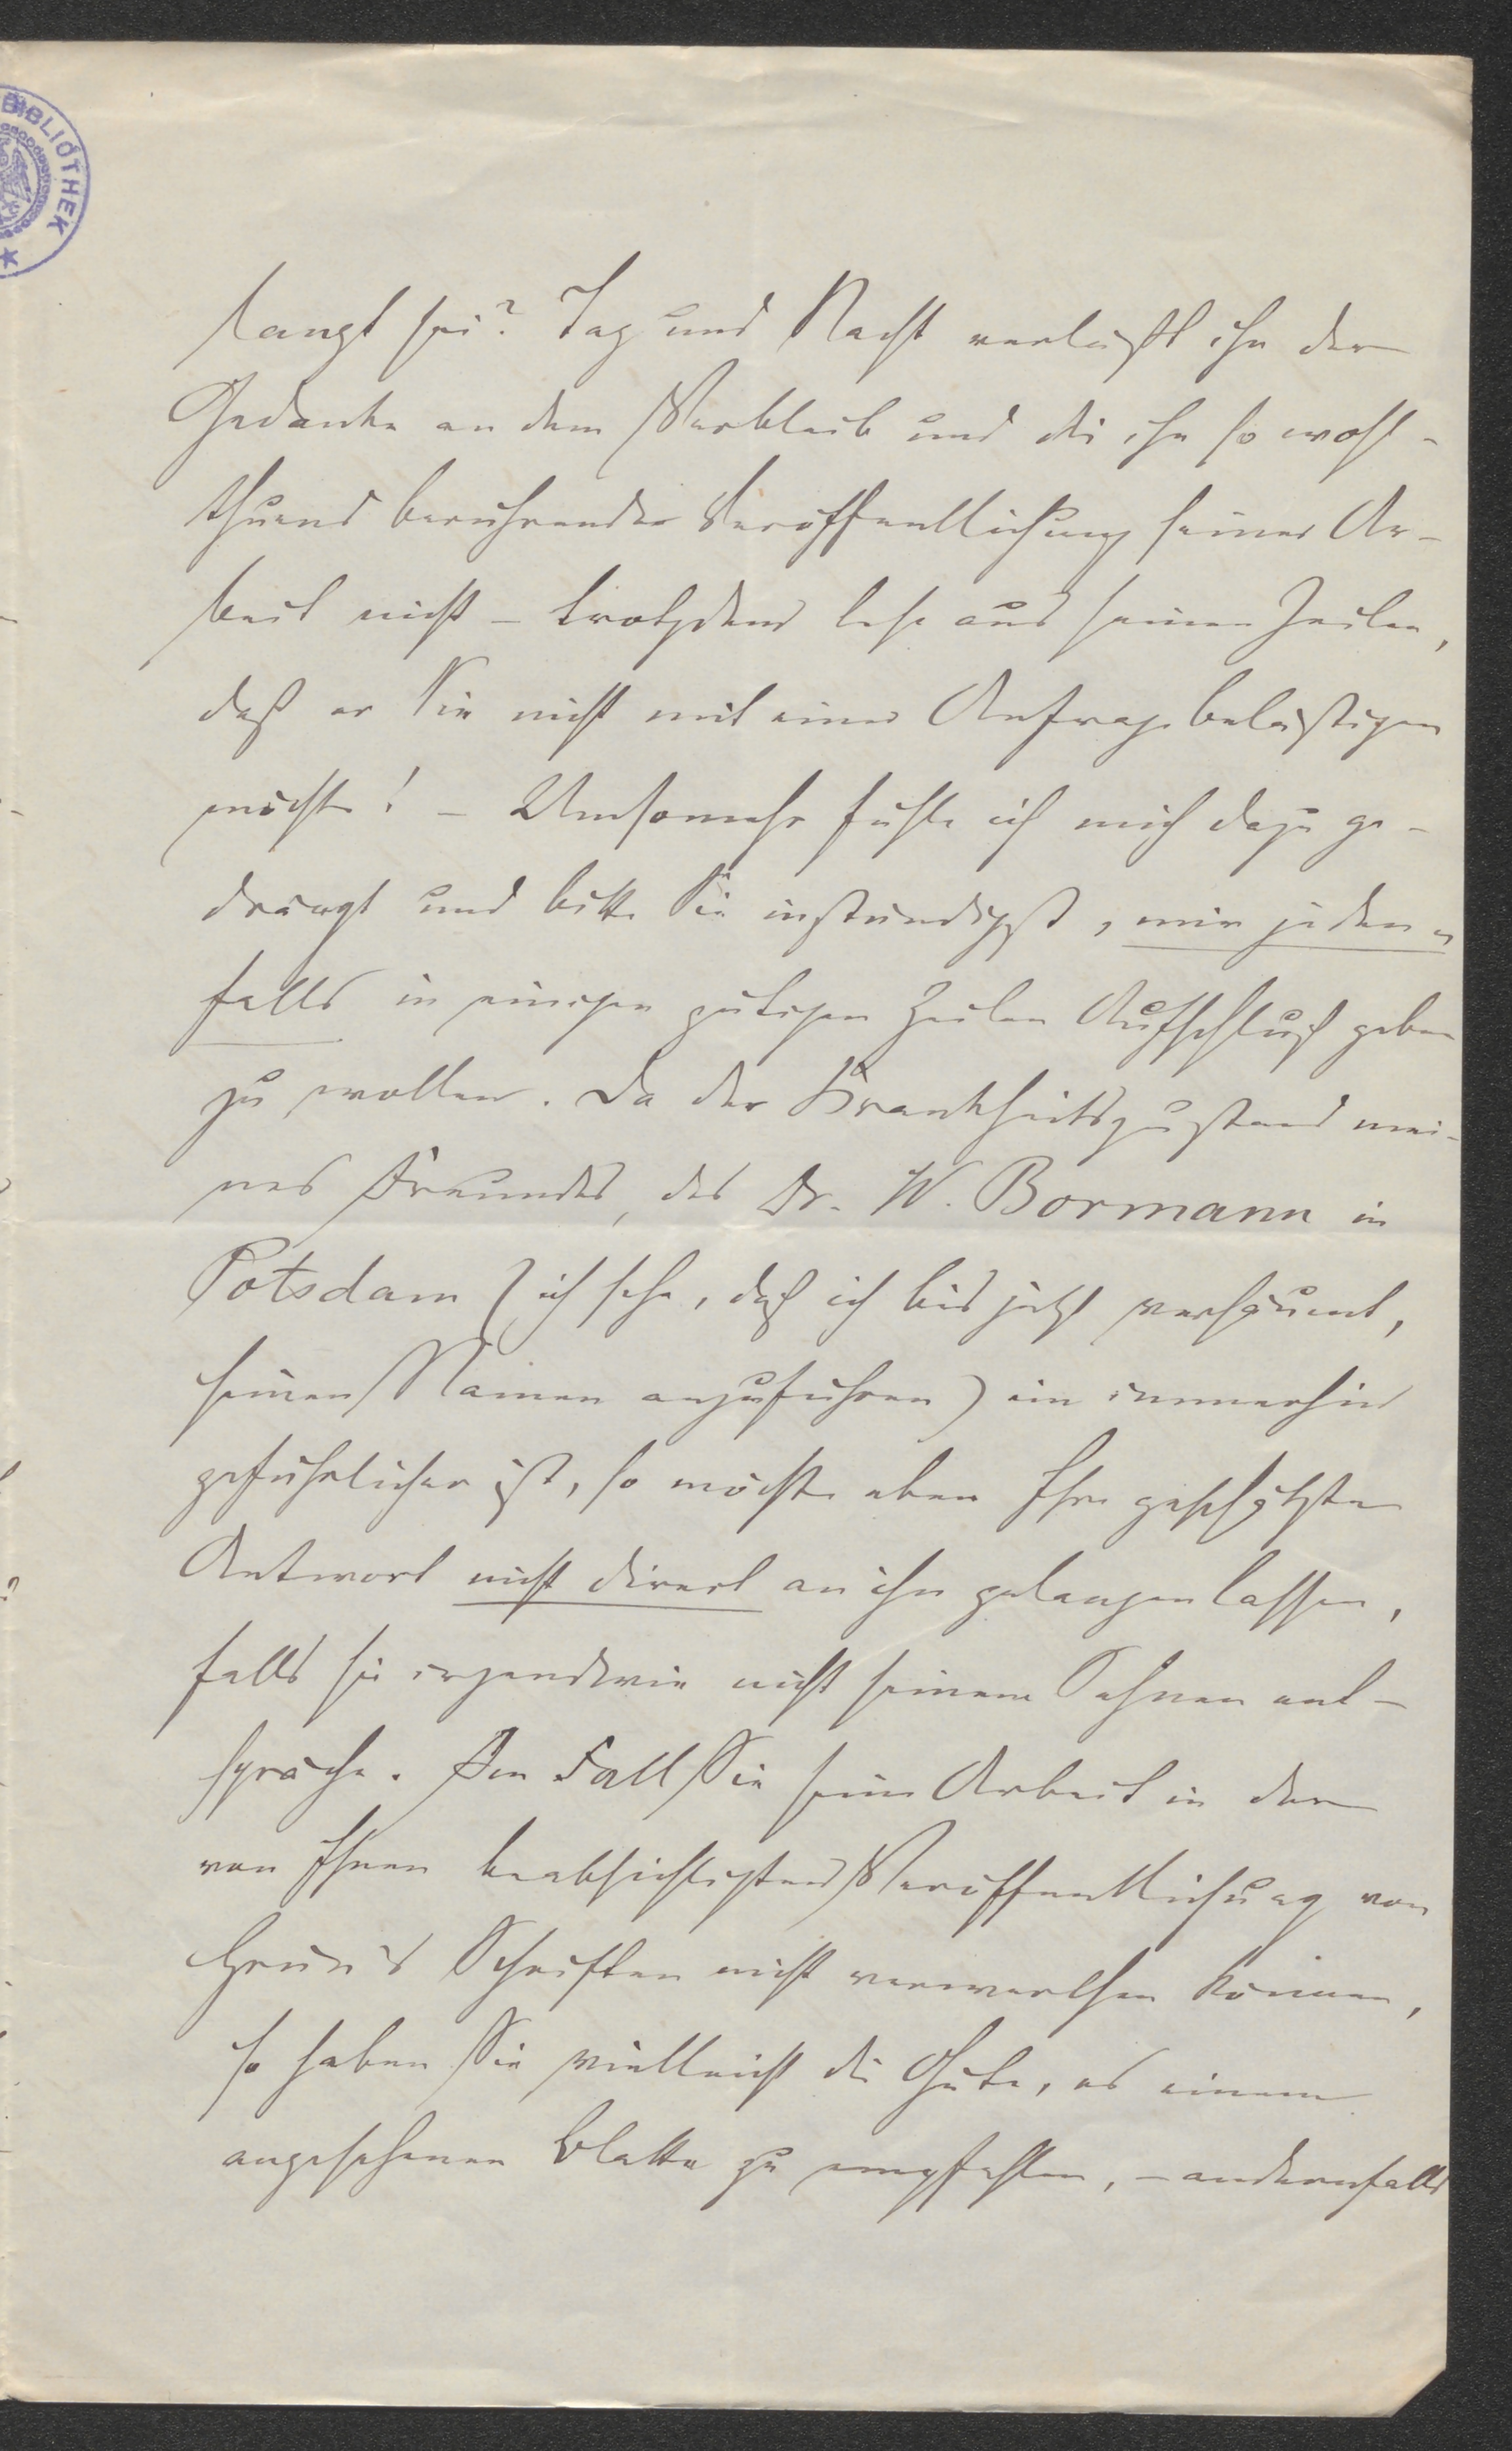 BIBLIOTHEK
langt sei? Tag und Nacht verläßt ihn der
Gedanke an dem Verbleib und die ihn so wohl-
thuend berührende Veröffentlichung seiner Ar-
beit nicht – trotzdem lese aus seinen Zeilen,
daß er Sie nicht mit einer Anfrage belästigen
möchte! – Umsomehr fühle ich mich dazu ge-
drängt und bitte Sie inständigst, mir jeden-
falls in einigen gütigen Zeilen Aufschluß geben
zu wollen. Da der Krankheitszustand mei-
nes Freundes, des Dr. W. Bormann in
Potsdam (ich sehe, daß ich bis jetzt versäumt,
seinen Namen anzuführen) ein immerhin
gefährlicher ist, so möchte eben Ihre geschätzte
Antwort nicht direct an ihn gelangen lassen,
falls sie irgendwie nicht seinem Sehnen ent-
spräche. Den Fall Sie seine Arbeit in der
von Ihnen beabsichtigten Veröffentlichung von
Grün's Schriften nicht verwerthen können,
so haben Sie vielleicht die Güte, es einem
angesehenen Blatte zu empfehlen, – andernfalls